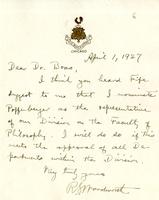 6
CHICAGO
April 1, 1927
Dear Dr. Boas,
I think you heard Fife
suggest to me that I nominate
Poffenberger as the representative
of our Division on the Faculty of
Philosophy. I will do so if this
meets the approval of all De-
partments within the Division.
Very truly yours
R S Woodworth